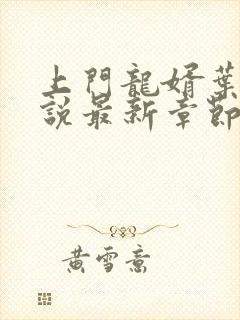 上門龍婿葉
說最新章節
黃雪意